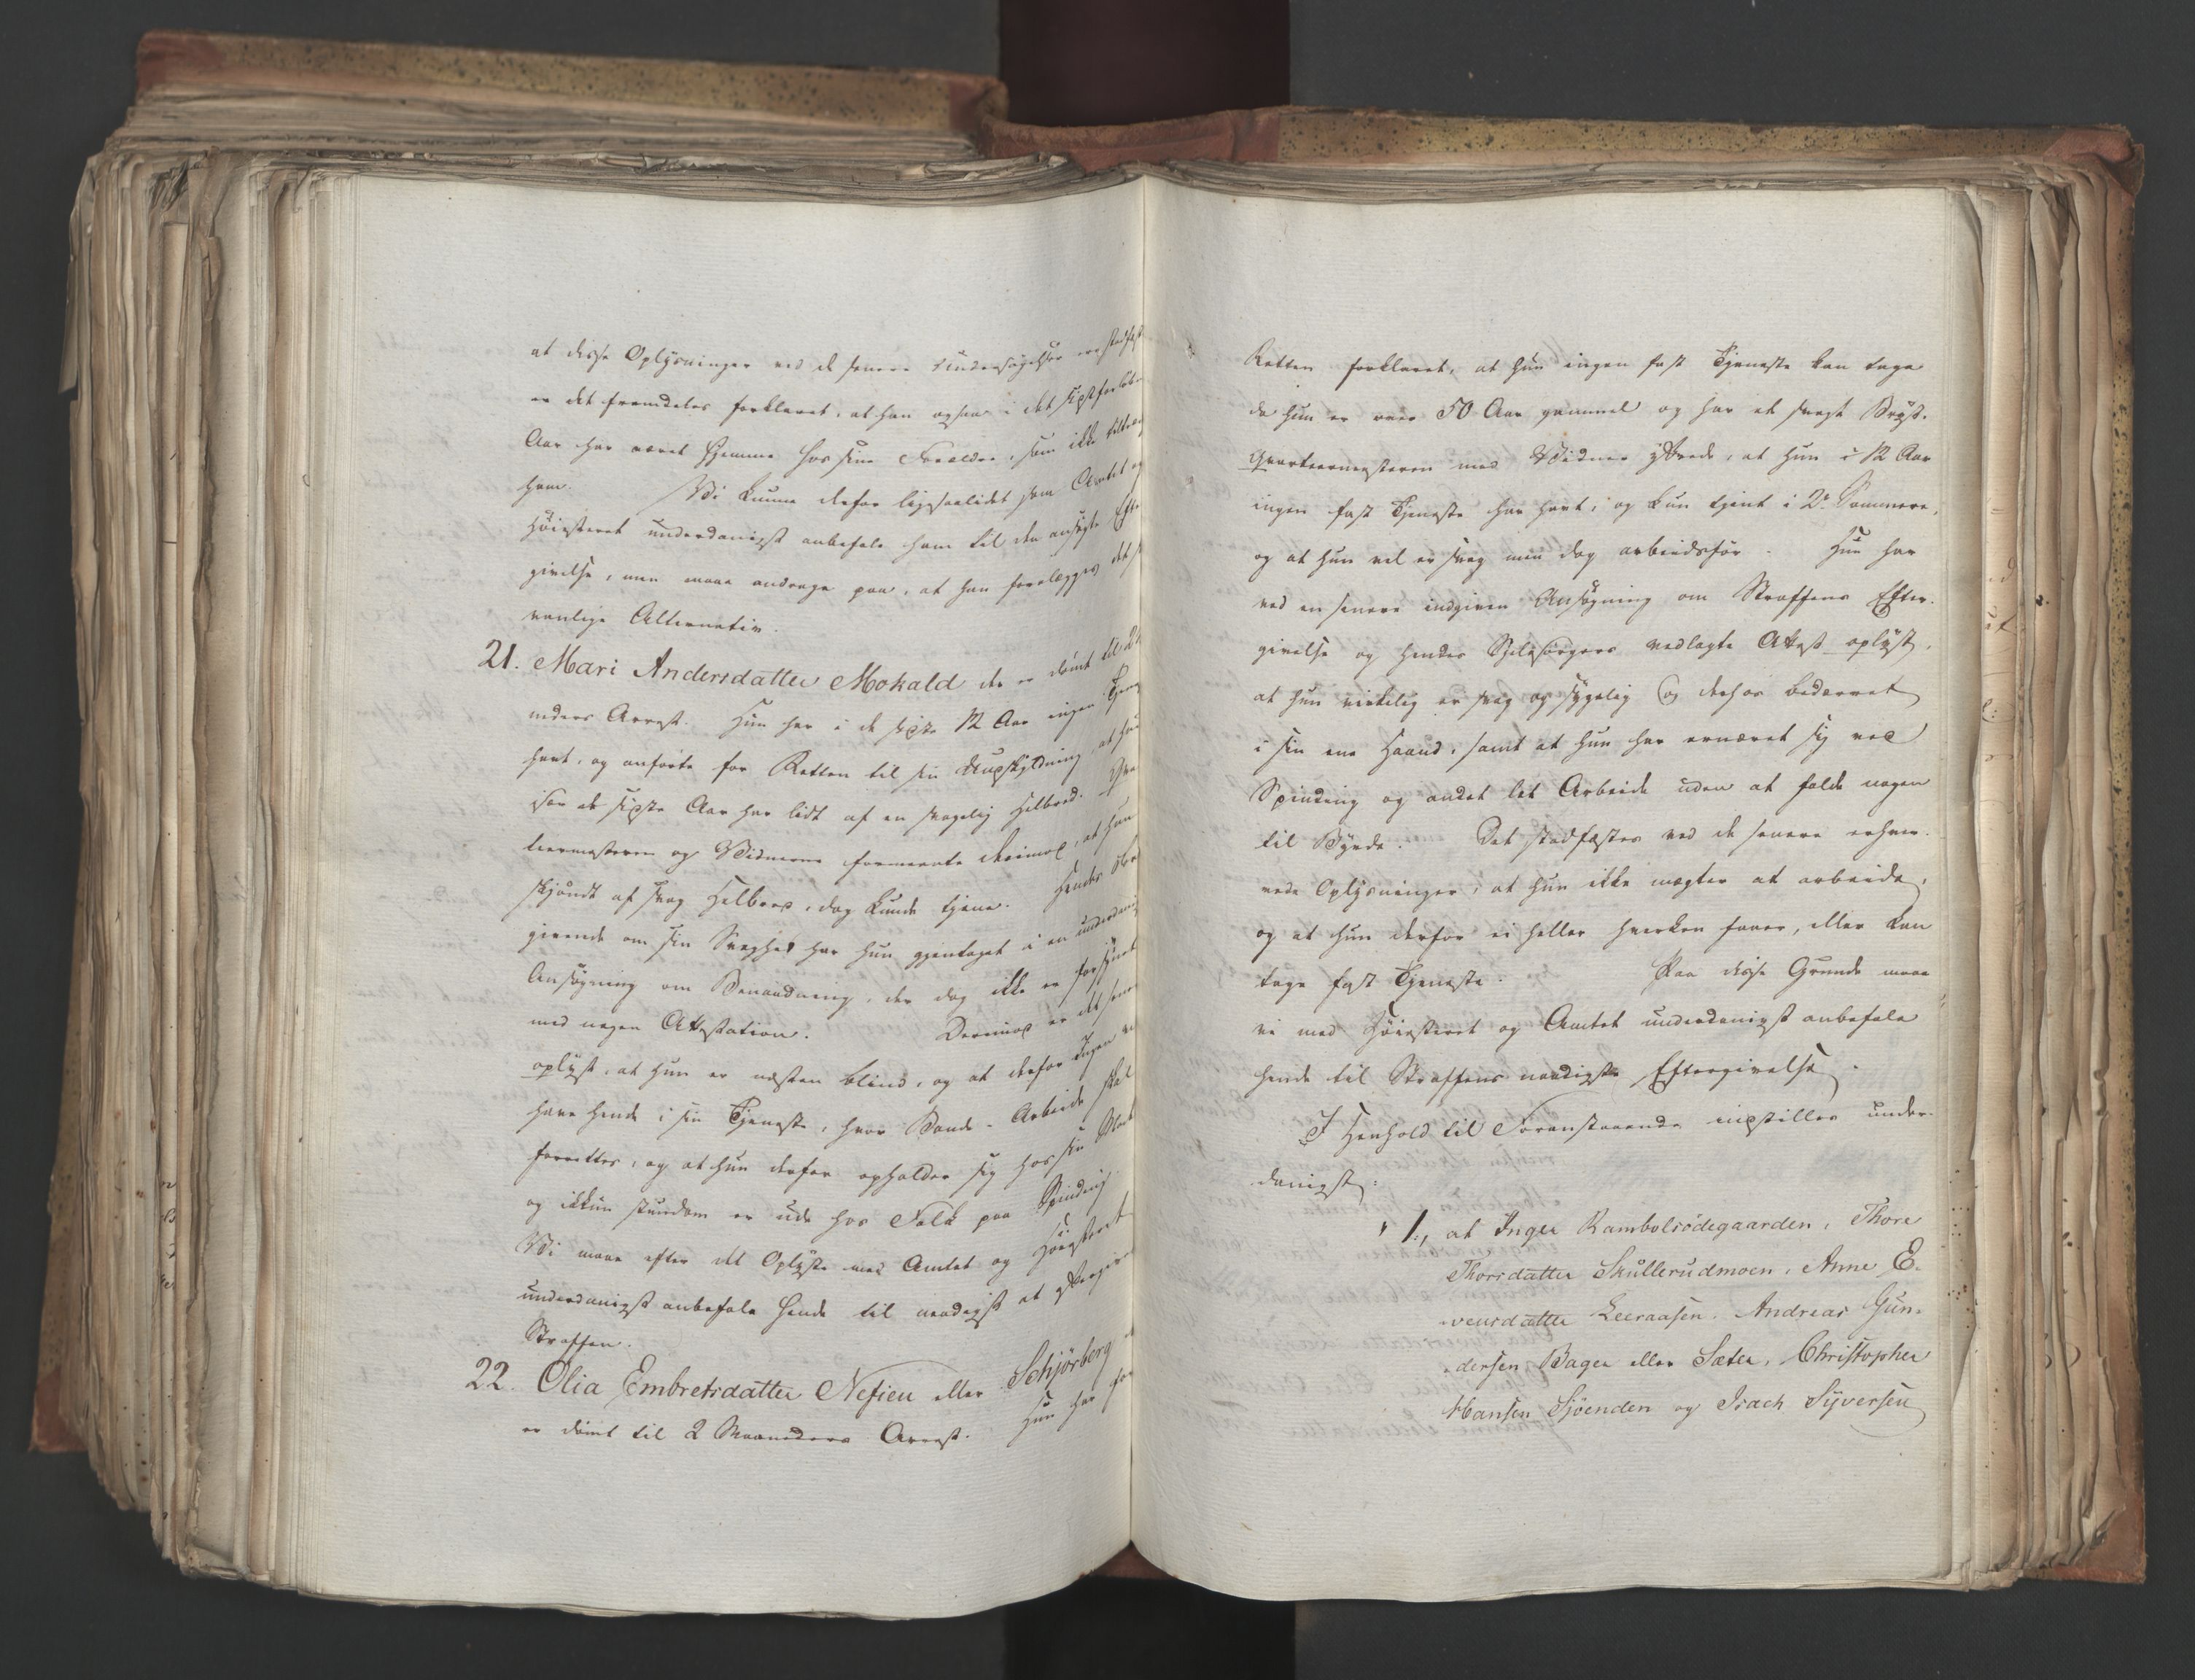 at disse Oplysninger ved de senere Undersøgelser ere stadfæst
er det fremdeles forklaret, at han ogsaa i det sidstforløbne
Aar har været hjemme hos sine Forældre, som ikke
ham. Vi kunne derfor ligesaalidet som Amtet og
Høiesteret underdanigst anbefale ham til den ansøgte Efter
givelse, men maae andrage paa, at han forelægges det s
vanlige Alternativ.
21. Mari Andersdatter Mokald der er dømt til 2
neders Arrest. Hun har i de sidste 12 Aar ingen Tjen
havt, og anførte for Retten til sin Undskyldning at hun
især de sidste Aar har lidt af en svagelig Helbred.
teermesteren og Vidnerne formeente derimod, at hun
skjøndt af svag Helbred, dog kunde tjene. Hendes
givende om sin Svaghed har hun gjentaget i en underdanig
Ansøgning om Benaadning, der dog ikke er forsynet
med nogen Attestation. Derimod er det senere
oplyst, at hun er næsten blind, og at derfor Ingen vil
have hende i sin Tjeneste, hvor Bonde-Arbeide skal
forrettes, og at hun derfor opholder sig hos sin
og ikkun stundom er ude hos Folk paa Spinding
Vi maae efter det Oplyste med Amtet og Høiesteret
underdanigst anbefale hende til naadigst at eftergives
Straffen.
22. Olia Embretsdatter Nefien eller Schjörberg
er dømt til 2 Maaneders Arrest. Hun har for
Retten forklaret, at hun ingen fast Tjeneste kan tage
da hun er over 50 Aar gammel og har et svagt Bryst.
Qvarteermesteren med Vidner yttrede, at hun i 12 Aar
ingen fast Tjeneste har havt, og kun tjent i 2de Sommere,
og at hun vel er svag men dog arbeidsfør. Hun har
ved en senere indgiven Ansøgning om Straffens Efter-
givelse og hendes Sjelesørgers vedlagte Attest oplyst,
at hun virkelig er svag og sygelig og derhos bedærvet
i sin ene Haand, samt at hun har ernæret sig ved
Spinding og andet let Arbeide uden at falde nogen
til Byrde. Det stadfæstes ved de senere erhver-
vede Oplysninger, at hun ikke mægter at arbeide,
og at hun derfor ei heller hverken faaer, eller kan
tage fast Tjeneste. Paa disse Grunde maae
vi med Høiesteret og Amtet underdanigst anbefale
hende til Straffens naadigste Eftergivelse.
I Henhold til Foranstaaende indstilles under-
danigst:
1., at Inger Rambolsödegaarden, Thore
Thorsdatter Skullerudmoen, Anne E-
vensdatter Leeraasen, Andreas Gun-
dersen Bager eller Sæter, Christopher
Hansen Sjöenden og Isach Syversen